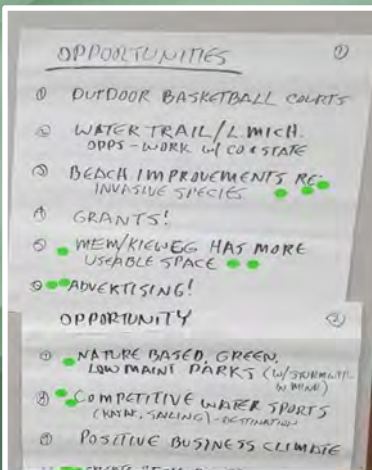 OPPORTUNITIES ①
① OUTDOOR BASKETBALL COURTS
② WATER TRAIL/L.MICH.
OPPS - WORK W/ CO & STATE
③ BEACH IMPROVEMENTS RE:
INVASIVE SPECIES
④ GRANTS!
⑤ MEM/KIEWEG HAS MORE
USEABLE SPACE
⑥ ADVERTISING!
OPPORTUNITY ②
⑦ NATURE BASED, GREEN,
LOW MAINT PARKS (W/STORMWTR.
IN MIND)
⑧ COMPETITIVE WATER SPORTS
(KAYAK, SAILING) - DESTINATION
⑨ POSITIVE BUSINESS CLIMATE